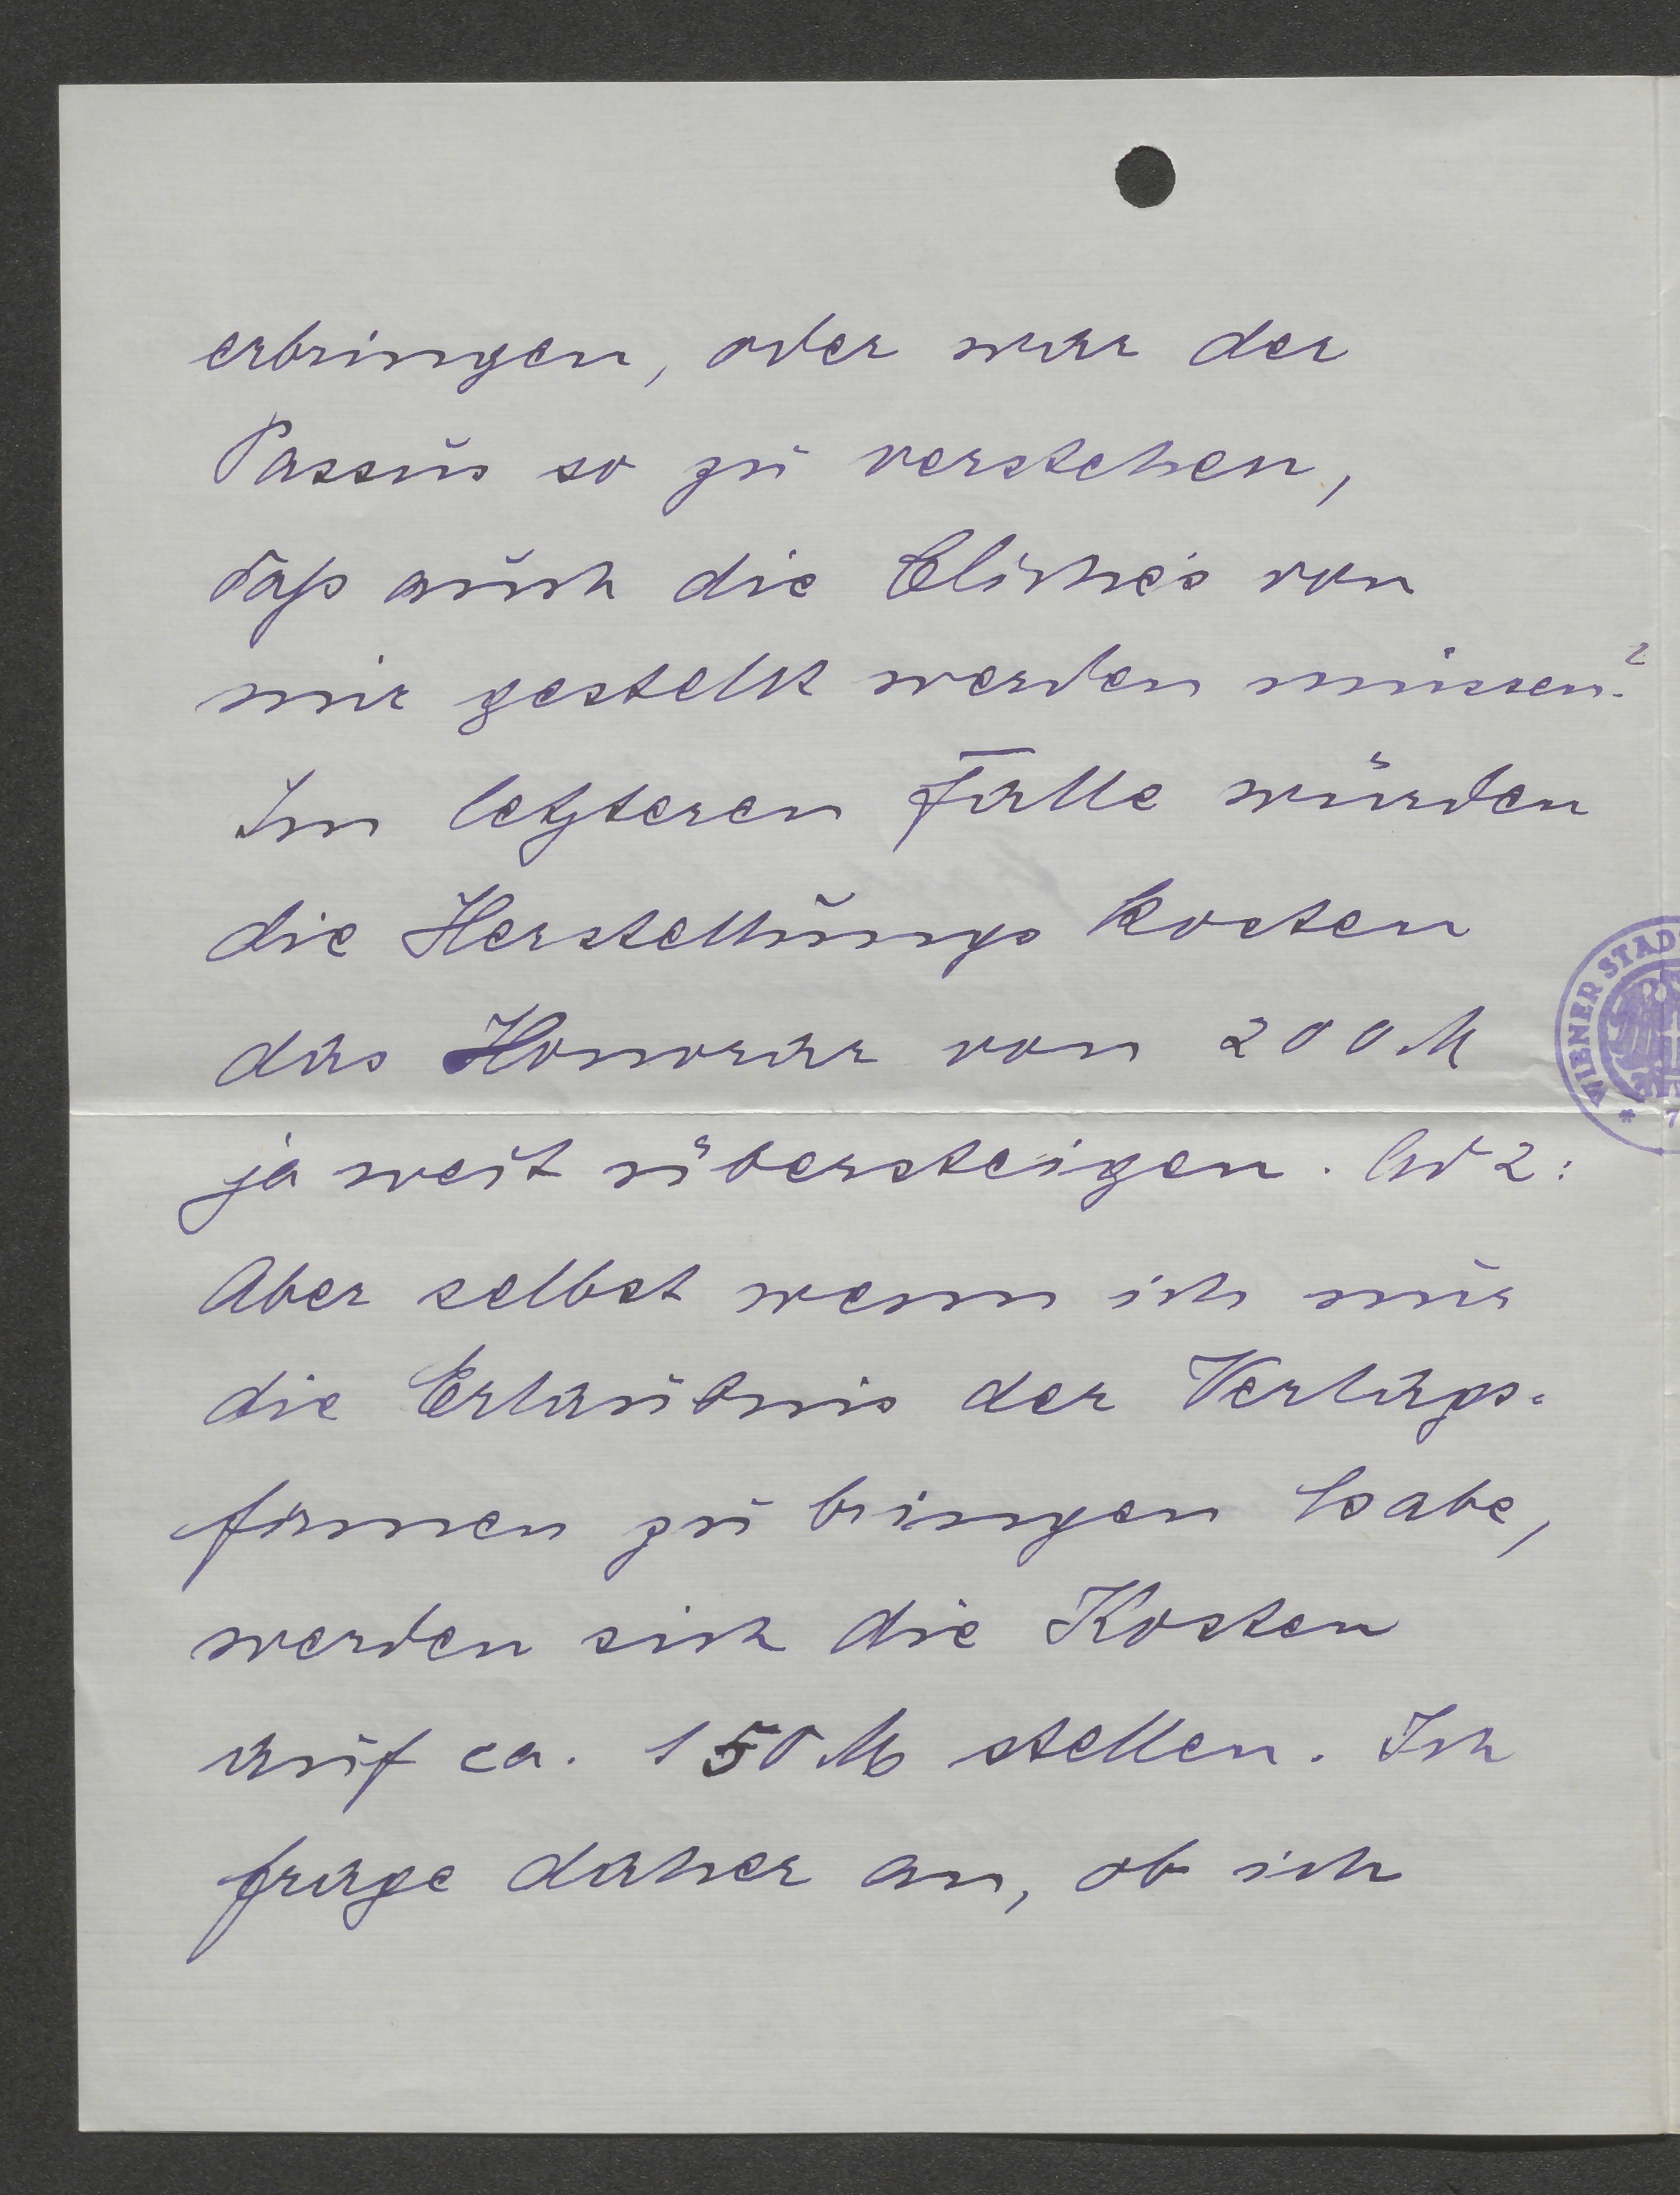 erbringen, oder war der
Passus so zu verstehen,
daß auch die Clichés von
mir gestellt werden müssen?
Im letzteren Falle würden
die Herstellungs kosten
das Honorar von 200 M
ja weit übersteigen. Ad 2:
Aber selbst wenn ich nur
die Erlaubnis der Verlags-
firmen zu bringen habe,
werden sich die Kosten
auf ca. 150 M stellen. Ich
frage daher an, ob ich
WIENER STAD
* 7